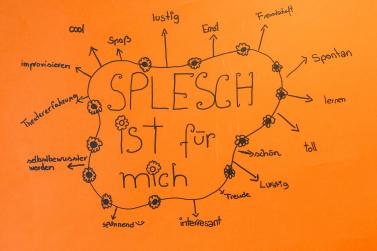 lustig
cool
Spaß
Ernst
Freundschaft
improvisieren
Spontan
Theatererfahrung
SPLESCH
ist für
mich
lernen
toll
selbstbewusster
werden
schön
Lustig
Freude
spannend
interessant